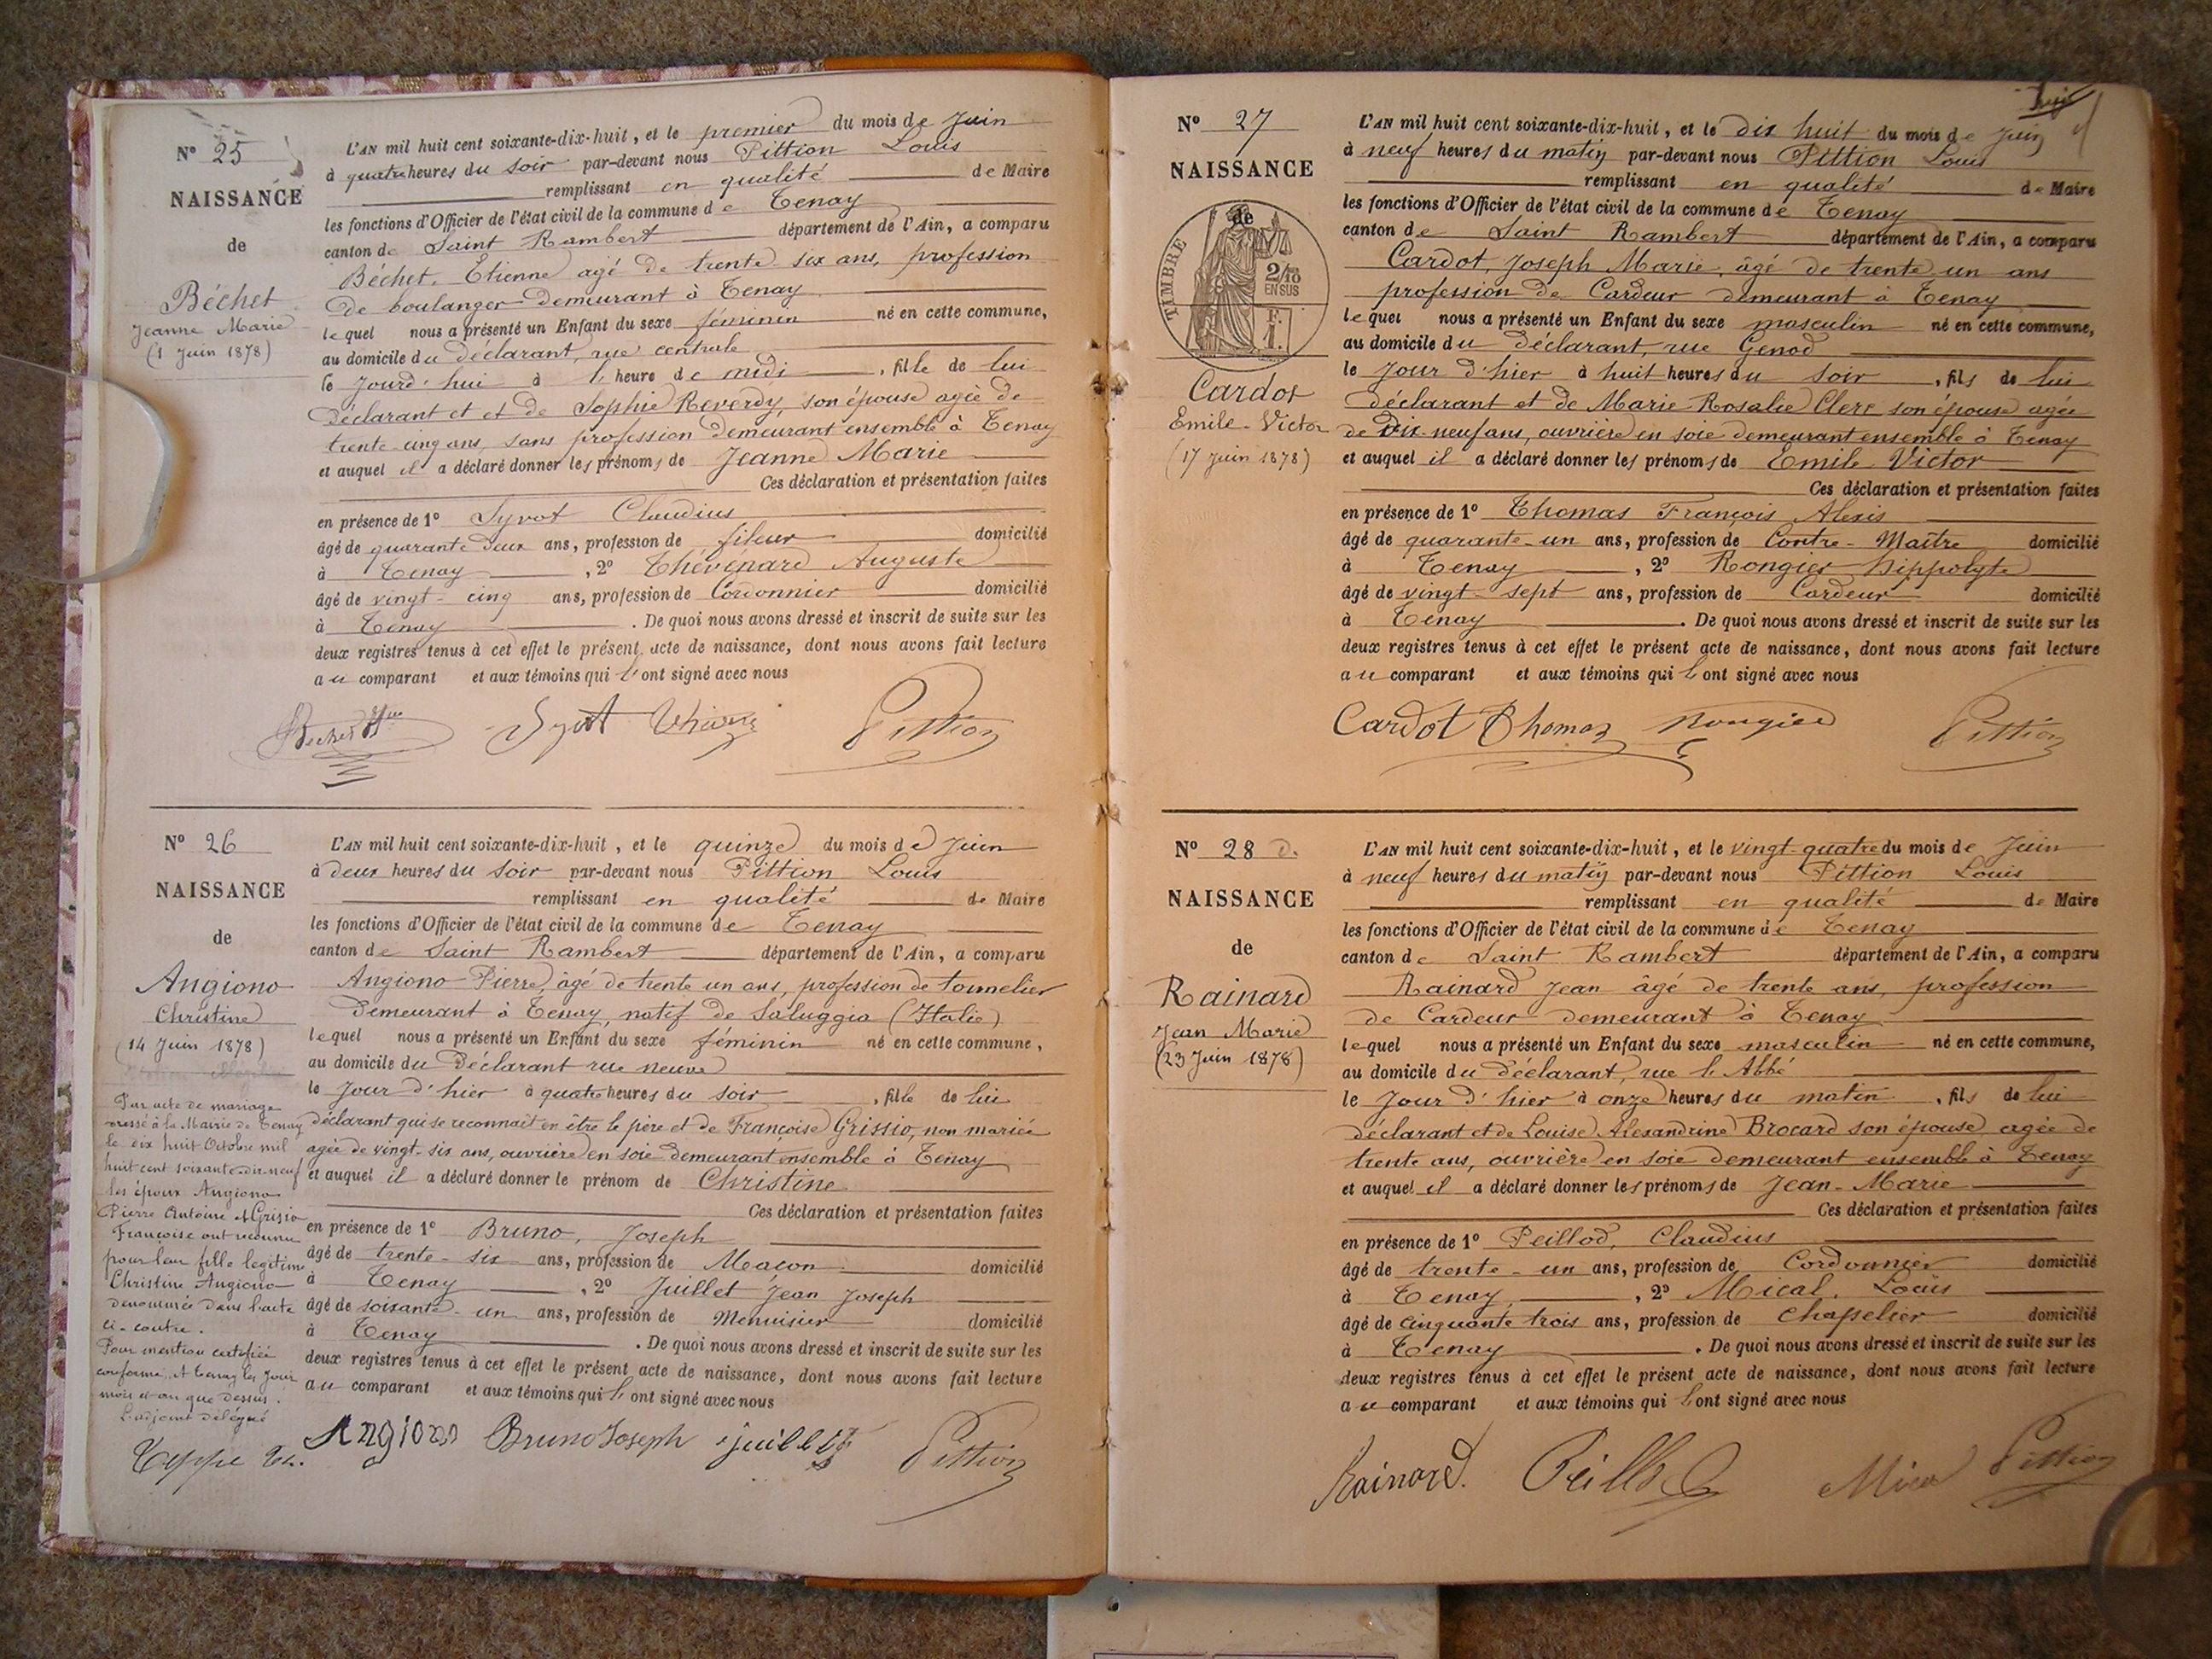 N° 25
NAISSANCE
de
Béchet
Jeanne Marie
(1 Juin 1878)
L'AN mil huit cent soixante-dix-huit, et le premier du mois de Juin
à quatre heures du soir par-devant nous Pittion Louis
remplissant en qualité de Maire
les fonctions d'Officier de l'état civil de la commune de Tenay
canton de Saint Rambert département de l'Ain, a comparu
Béchet, Etienne agé de trente six ans, profession
de boulanger demeurant à Tenay
lequel nous a présenté un Enfant du sexe féminin né en cette commune,
au domicile du déclarant, rue centrale
le jourd'hui à l'heure de midi, fille de lui
déclarant et et de Sophie Reverdy, son épouse agée de
trente cinq ans, sans profession demeurant ensemble à Tenay
et auquel il a déclaré donner les prénoms de Jeanne Marie
Ces déclaration et présentation faites
en présence de 1° Syvot Claudius
âgé de quarante deux ans, profession de fileur domicilié
à Tenay, 2° Thévénard Auguste
âgé de vingt-cinq ans, profession de Cordonnier domicilié
à Tenay. De quoi nous avons dressé et inscrit de suite sur les
deux registres tenus à cet effet le présent acte de naissance, dont nous avons fait lecture
au comparant et aux témoins qui l'ont signé avec nous
Syvot Pittion
N° 26
NAISSANCE
de
Angiono
Christine
(14 Juin 1878)
Par acte de mariage
dressé à la Mairie de Tenay
le dix huit Octobre mil
huit cent soixante-dix-neuf
les époux Angiono
Pierre Antoine et Grisio
Françoise ont reconnu
pour leur fille légitime
Christine Angiono
dénommée dans l'acte
ci-contre.
Pour mention certifiée
conforme, A Tenay les jour
mois et an que dessus.
L'adjoint délégué
L'AN mil huit cent soixante-dix-huit, et le quinze du mois de Juin
à deux heures du soir par-devant nous Pittion Louis
remplissant en qualité de Maire
les fonctions d'Officier de l'état civil de la commune de Tenay
canton de Saint Rambert département de l'Ain, a comparu
Angiono Pierre, âgé de trente un ans, profession de tonnelier
demeurant à Tenay, natif de Saluggia (Italie)
lequel nous a présenté un Enfant du sexe féminin né en cette commune,
au domicile du Déclarant rue neuve
le jour d'hier à quatre heures du soir, fille de lui
déclarant qui se reconnait en être le père et de Françoise Grissio, non mariée
agée de vingt-six ans, ouvrière en soie demeurant ensemble à Tenay
et auquel il a déclaré donner le prénom de Christine
Ces déclaration et présentation faites
en présence de 1° Bruno, Joseph
âgé de trente-six ans, profession de Maçon domicilié
à Tenay, 2° Juillet Jean Joseph
âgé de soixante-un ans, profession de Menuisier domicilié
à Tenay. De quoi nous avons dressé et inscrit de suite sur les
deux registres tenus à cet effet le présent acte de naissance, dont nous avons fait lecture
au comparant et aux témoins qui l'ont signé avec nous
Angiono Bruno Joseph juillet Pittion
N° 27
NAISSANCE
de
TIMBRE
2/10
EN SUS
Cardot
Emile-Victor
(17 Juin 1878)
L'AN mil huit cent soixante-dix-huit, et le dix huit du mois de Juin
à neuf heures du matin par-devant nous Pittion Louis
remplissant en qualité de Maire
les fonctions d'Officier de l'état civil de la commune de Tenay
canton de Saint Rambert département de l'Ain, a comparu
Cardot, Joseph Marie, âgé de trente un ans
profession de Cardeur demeurant à Tenay
lequel nous a présenté un Enfant du sexe masculin né en cette commune,
au domicile du déclarant, rue Genod
le jour d'hier à huit heures du soir, fils de lui
déclarant et de Marie Rosalie Clerc son épouse agée
de Dix-neuf ans, ouvrière en soie demeurant ensemble à Tenay
et auquel il a déclaré donner les prénoms de Emile Victor
Ces déclaration et présentation faites
en présence de 1° Thomas François Alexis
âgé de quarante-un ans, profession de Contre-Maître domicilié
à Tenay, 2° Rongier Hippolyte
âgé de vingt-sept ans, profession de Cardeur domicilié
à Tenay. De quoi nous avons dressé et inscrit de suite sur les
deux registres tenus à cet effet le présent acte de naissance, dont nous avons fait lecture
au comparant et aux témoins qui l'ont signé avec nous
Cardot Thomas Rougier Pittion
N° 28
NAISSANCE
de
Rainard
Jean Marie
(23 Juin 1878)
L'AN mil huit cent soixante-dix-huit, et le vingt-quatre du mois de Juin
à neuf heures du matin par-devant nous Pittion Louis
remplissant en qualité de Maire
les fonctions d'Officier de l'état civil de la commune de Tenay
canton de Saint Rambert département de l'Ain, a comparu
Rainard Jean âgé de trente ans, profession
de Cardeur demeurant à Tenay
lequel nous a présenté un Enfant du sexe masculin né en cette commune,
au domicile du déclarant, rue l'Abbé
le jour d'hier à onze heures du matin, fils de lui
déclarant et de Louise Alexandrine Brocard son épouse agée de
trente ans, ouvrière en soie demeurant ensemble à Tenay
et auquel il a déclaré donner les prénoms de Jean-Marie
Ces déclaration et présentation faites
en présence de 1° Peillod, Claudius
âgé de trente-un ans, profession de Cordonnier domicilié
à Tenay, 2° Mical, Louis
âgé de cinquante trois ans, profession de Chapelier domicilié
à Tenay. De quoi nous avons dressé et inscrit de suite sur les
deux registres tenus à cet effet le présent acte de naissance, dont nous avons fait lecture
au comparant et aux témoins qui l'ont signé avec nous
Rainard. Peillod Mical Pittion